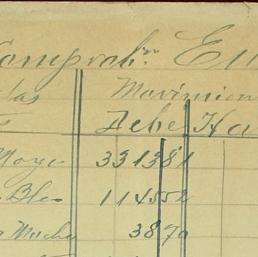 Comprobn. En
tas Movimien
s Debe Ha
Moye 331381
Bles 114552
Muche 3870